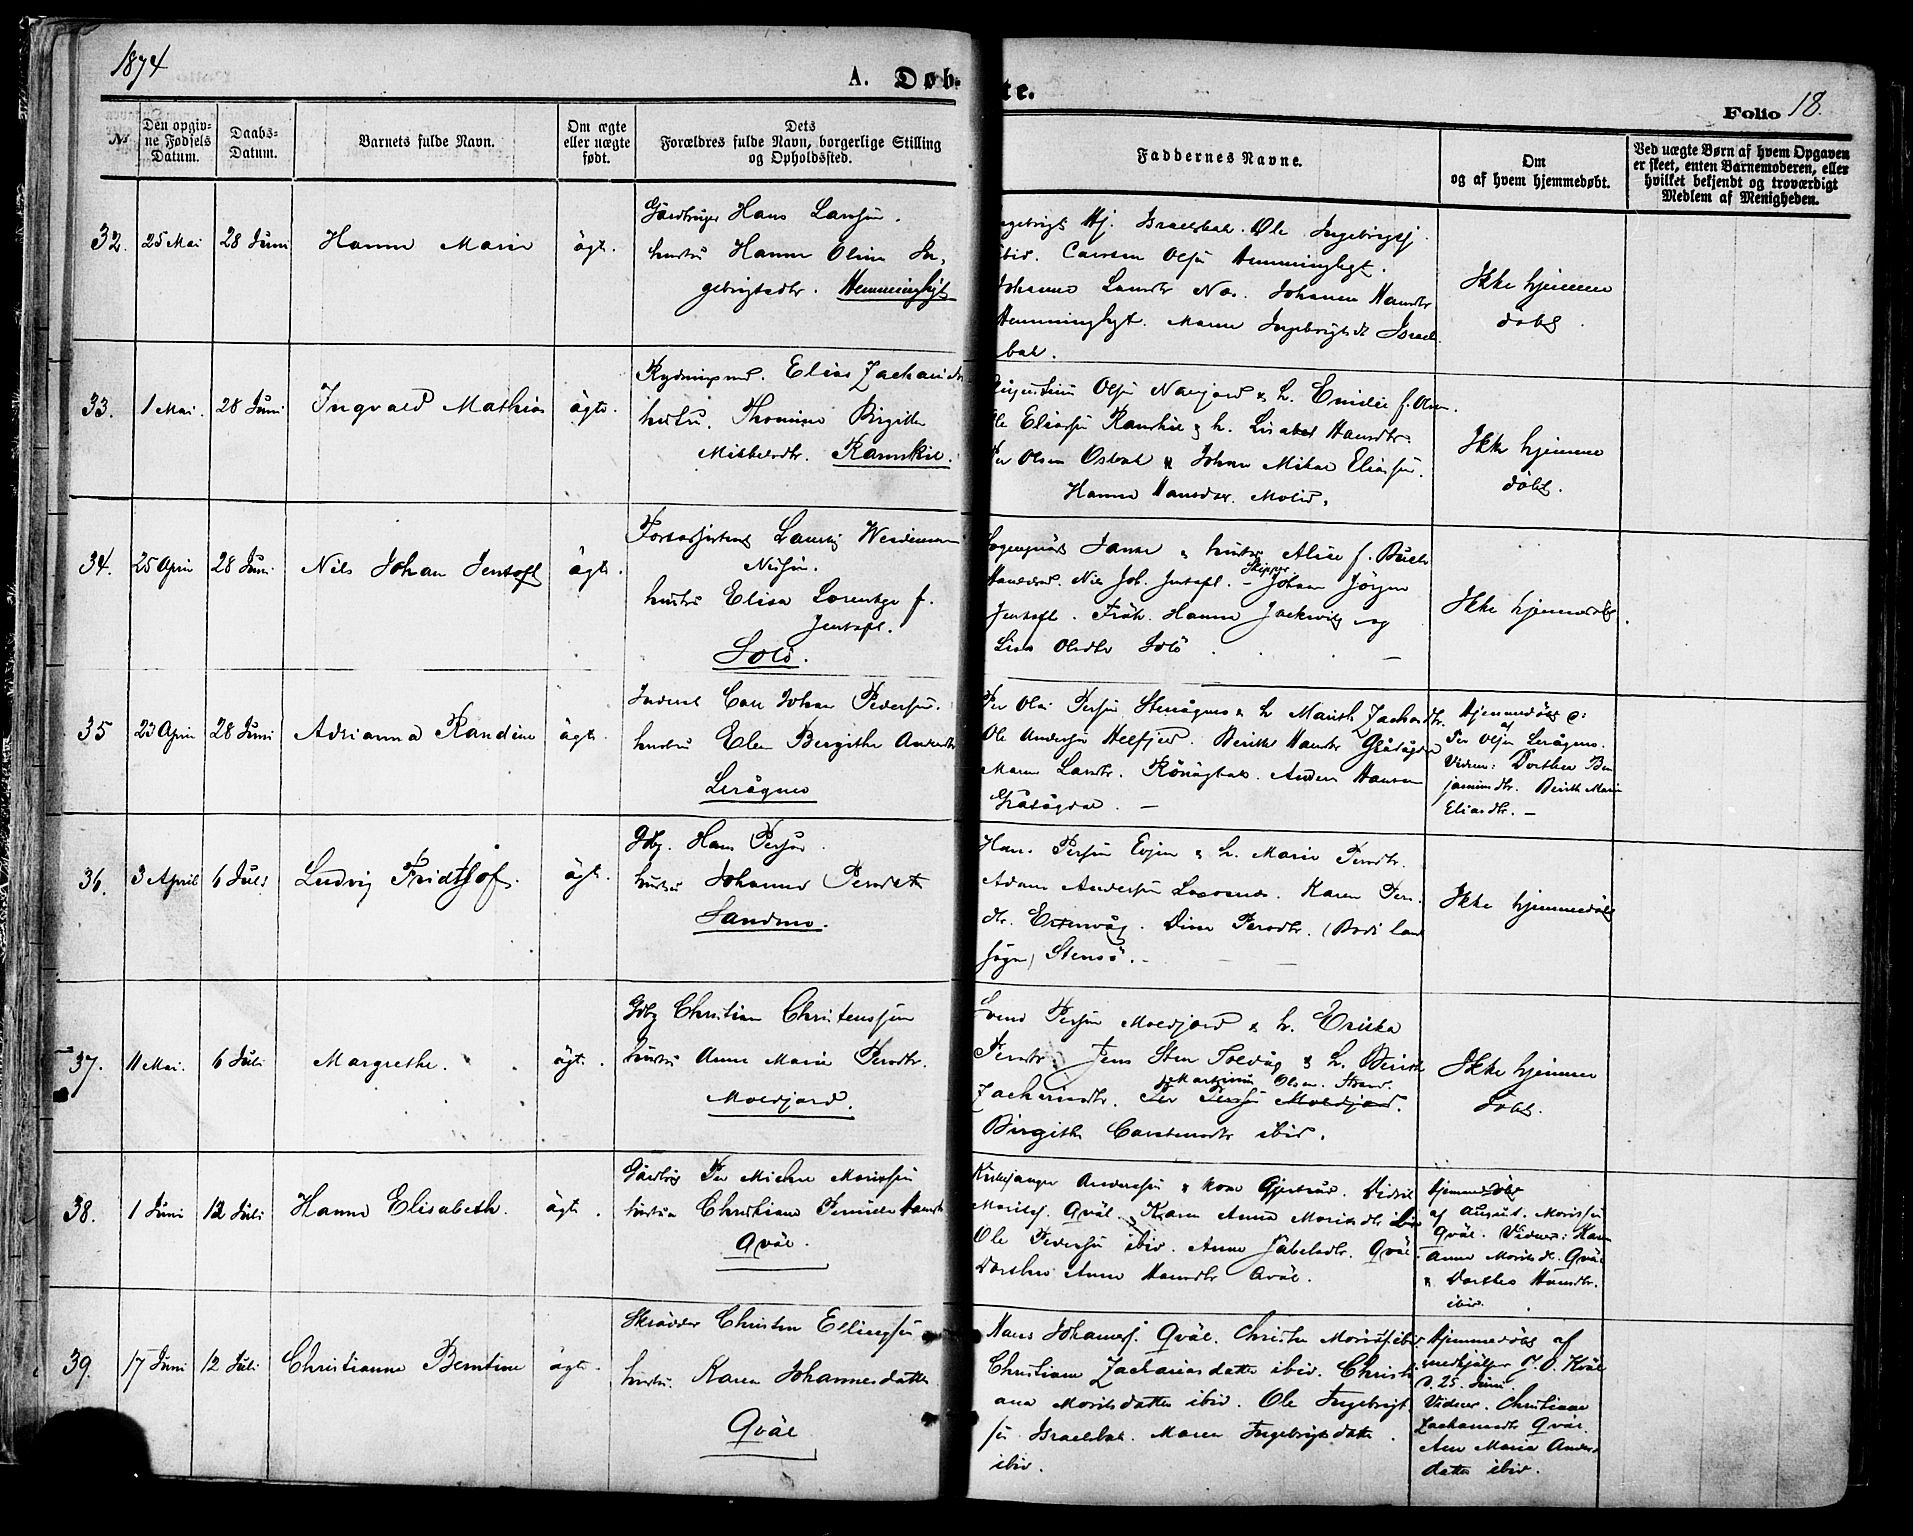 1874
A. Døb-
te.
Folio 18.
№
Den opgiv-
ne Fødsels
Datum.
Daabs-
Datum.
Barnets fulde Navn.
Om ægte
eller uægte
født.
Dets
Forældres fulde Navn, borgerlige Stilling
og Opholdssted.
Faddernes Navne.
Om
og af hvem hjemmedøbt.
Ved uægte Børn af hvem Opgaven
er skeet, enten Barnemoderen, eller
hvilket bekjendt og troværdigt
Medlem af Menigheden.
32. 25 Mai 28 Juni Hanna Marie ägt.
Hans Larssen.
hustru Hanna Olina In-
gebrigtsdtr. Hemminghyt
Hj. Israelsbak. Ole Ingebrigtsj.
ibid. Olsen Hemminghyt.
Johanna Larsdtr Nos. Johanna Hansdtr
Hemminghyt. Maren Ingebrigtsd. Israels
bak.
Ikke hjemme
döbt.
33. 1 Mai. 28 Juni Ingvald Mathias ägt.
Rydningsmd. Elias Zacharias
hustru. Thomine Birgitte
Mikkelsdtr. Ramskil.
Olsen Navjord & h. Emilie f. Olsen.
Ole Eliassen Ramskil & h. Lisabet Hansdtr.
Per Olsen Osbak & Johan Mikal Eliassen.
Hanna Hansdtr. Molid.
Ikke hjemme
döbt.
34. 25 April 28 Juni Nils Johan Jentoft ägt.
Nilsen.
hustru Elisa Lorentze f.
Jentoft.
Solö.
& hustru Alise f. Buch
Nils Joh. Jentoft. – Skipper Johan Jörgen
Jentoft. Frök. Hanna Jackwitz og
Lisa Olsdtr Solö
Ikke hjemmedöbt
35 23 April 28 Juni Adrianna Randine ägt.
Inderst Carl Johan Pedersen.
hustru Elen Bergithe Andersdtr
Lerågnes
Per Olai Persen Stenågnes & h. Marith Zachrsdtr.
Ole Andersen Helfjed. Berith Hansdtr Gråtådal
Maren Larsdtr. Anders Hansen
Gråtådal. –
Hjemmedöbt
af
Per Olsen Lerågnes.
Vidner: Dorthea Ben
jamindtr. Berith Maria
Eliasdtr. –
36. 3 April 6 Juli Ludvig Fridthjof. ägt.
Gdbr. Hans Persen.
hustru Johanna Persdtr
Sandmo.
Hans Persen Evjen & h. Maria Persdtr.
Adam Andersen Karen Pers-
dtr. Dina Persdtr. (Bodö land
sogn) Stensö. –
Ikke hjemmedöbt
37. 11 Mai. 6 Juli Margrethe. ägt.
Gdbr Christian Christenssen
hustru Anne Maria Persdtr.
Moldjord.
Svend Persen Moldjord & h. Ericka
Persdtr. Jens Sten Tolvåg & h. Berith
Zachrisdtr. Per Persen Moldjord. Martinus Olsen. Strand.
Birgithe Carstensdtr ibid.
Ikke hjemme
döbt.
38. 1 Juni 12 Juli Hanna Elisabeth. ägt.
Gårdbr Per Michal Moritssen
hustru Christiane Pernille Hansdtr
Qväl.
Kirkesanger Anderssen & kone Gjertrud. Didrik
Moritsf. Qväl. Karen Anna Moritsdtr. ibid
Ole Pedersen ibid. Anne Jabelsdtr. Qväl.
Dorthea Anna Hansdtr Qväl.
Hjemmedöbt
af August. Moritssen
Qväl. Vidner: Karen
Anna Moritsd. Qväl
& Dorthea Hansdtr.
ibid.
39. 17 Juni 12 Juli Christianna Berntine ägt.
Skrädder Christen Ellingsen
hustru. Karen Johannesdatter
Qväl
Hans Johannesj. Qväl. Christen Moritsf. ibid.
Christiane Zachariasdatter ibid. Christi
ana Moritsdatter ibid. Ole Ingebrigt
sen Israelsbak. Maren Ingebrigtsdatter
ibid.
Hjemmedöbt af
medhjälper P. O. Kväl
d. 25. Juni.
Vidner. Christiane
Zachariasdtr Qväl.
Ane Maria Anders
datter ibid.